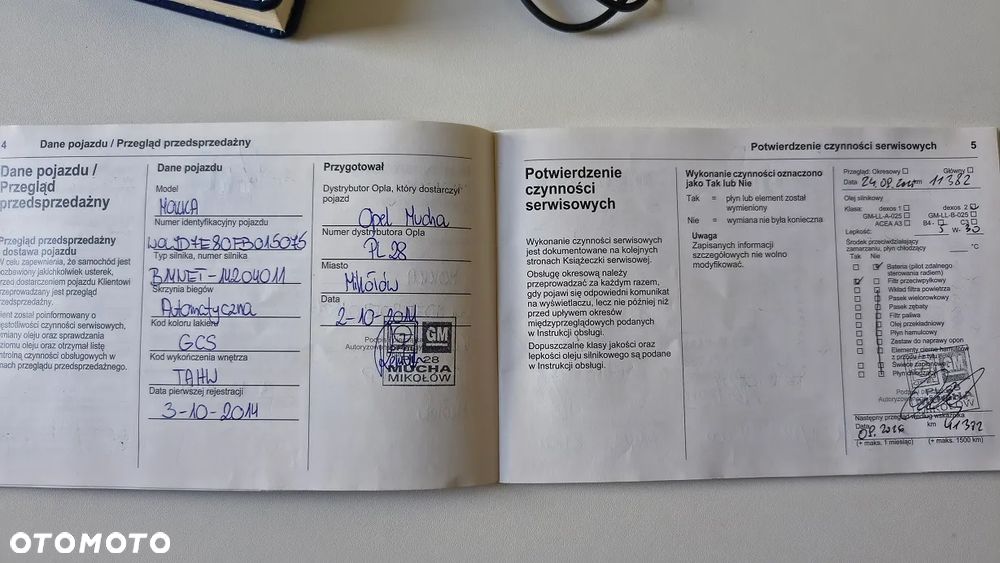 4 Dane pojazdu / Przegląd przedsprzedażny
Dane pojazdu /
Przegląd
przedsprzedażny
Przegląd przedsprzedażny
dostawa pojazdu
W celu zapewnienia, że samochód jest
pozbawiony jakichkolwiek usterek,
przed dostarczeniem pojazdu Klientowi
przeprowadzany jest przegląd
przedsprzedażny.
Klient został poinformowany o
częstotliwości czynności serwisowych,
zmiany oleju oraz sprawdzania
poziomu oleju oraz otrzymał listę
kontrolną czynności obsługowych w
ramach przeglądu przedsprzedażnego.
Dane pojazdu
Model
MOKKA
Numer identyfikacyjny pojazdu
W0LJD7E80FB015075
Typ silnika, numer silnika
Skrzynia biegów
Automatyczna
Kod koloru lakieru
GCS
Kod wykończenia wnętrza
TAHW
Data pierwszej rejestracji
3-10-2014
Przygotował
Dystrybutor Opla, który dostarczył
pojazd
Opel Mucha
Numer dystrybutora Opla
PL 28
Miasto
Mikołów
Data
2-10-2014
GM
28
MUCHA
MIKOŁÓW
Potwierdzenie czynności serwisowych 5
Potwierdzenie
czynności
serwisowych
Wykonanie czynności serwisowych
jest dokumentowane na kolejnych
stronach Książeczki serwisowej.
Obsługę okresową należy
przeprowadzać za każdym razem,
gdy pojawi się odpowiedni komunikat
na wyświetlaczu, lecz nie później niż
przed upływem okresów
międzyprzeglądowych podanych
w Instrukcji obsługi.
Dopuszczalne klasy jakości oraz
lepkości oleju silnikowego są podane
w Instrukcji obsługi.
Wykonanie czynności oznaczono
jako Tak lub Nie
Tak = płyn lub element został
wymieniony
Nie = wymiana nie była konieczna
Uwaga
Zapisanych informacji
szczegółowych nie wolno
modyfikować.
Przegląd: Okresowy Główny
Data 24.09.2015 km 11382
Olej silnikowy
Klasa: dexos 1 dexos 2
GM-LL-A-025 GM-LL-B-025
ACEA A3 B4 - C3
Lepkość: 5 W- 30
Środek przeciwdziałający
zamarzaniu, płyn chłodzący °C
Tak Nie
Bateria (pilot zdalnego
sterowania radiem)
Filtr przeciwpyłkowy
Wkład filtra powietrza
Pasek wielorowkowy
Pasek zębaty
Filtr paliwa
Olej przekładniowy
Płyn hamulcowy
Zestaw do naprawy opon
Elementy cierne hamulców
z przodu / na tyle
Świece zapłonowe
Płyn chłodzący
MIKOŁÓW
Następny przegląd według wskaźnika
Data 09.2016 km 41382
(+ maks. 1 miesiąc) (+ maks. 1500 km)
OTOMOTO